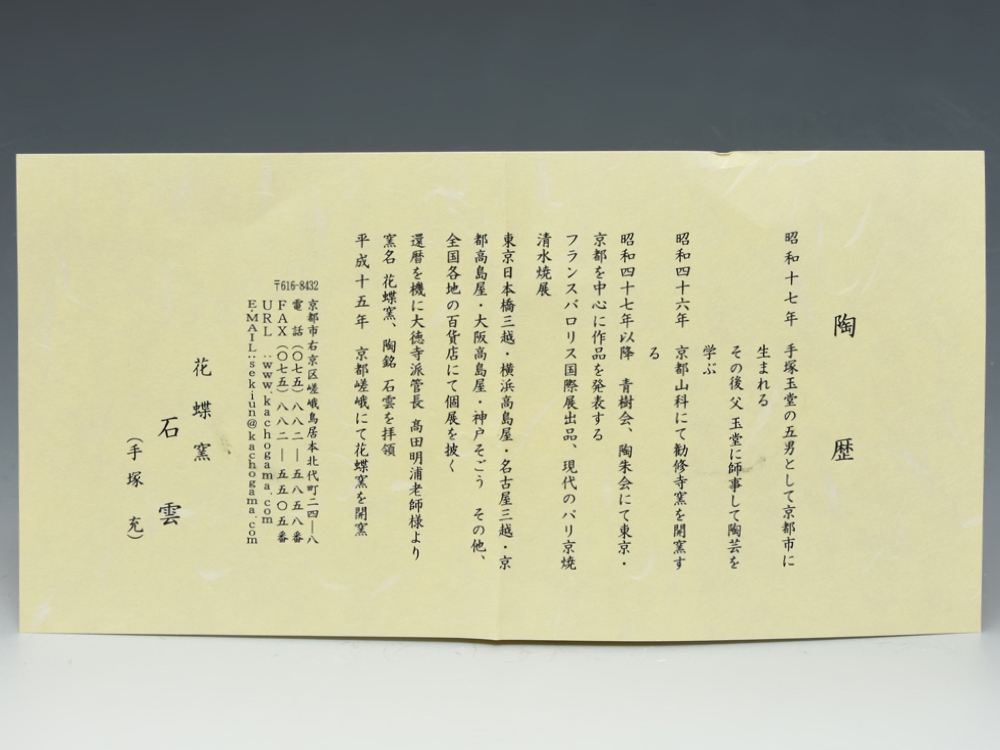 陶歴
昭和十七年 手塚玉堂の五男として京都市に
生まれる
その後 父 玉堂に師事して陶芸を
学ぶ
昭和四十六年 京都山科にて勧修寺窯を開窯す
る
昭和四十七年以降 青樹会、陶朱会にて東京・
京都を中心に作品を発表する
フランスバロリス国際展出品、現代のパリ京焼
清水焼展
東京日本橋三越・横浜高島屋・名古屋三越・京
都高島屋・大阪高島屋・神戸そごう その他、
全国各地の百貨店にて個展を披く
還暦を機に大徳寺派管長 高田明浦老師様より
窯名 花蝶窯、陶銘 石雲を拝領
平成十五年 京都嵯峨にて花蝶窯を開窯
〒616-8432
京都市右京区嵯峨鳥居本北代町二四―八
電話(〇七五)八八二―五八五八番
FAX(〇七五)八八二―五五〇五番
URL:www.kachogama.com
E-MAIL:sekiun@kachogama.com
花蝶窯
石雲
(手塚 充)